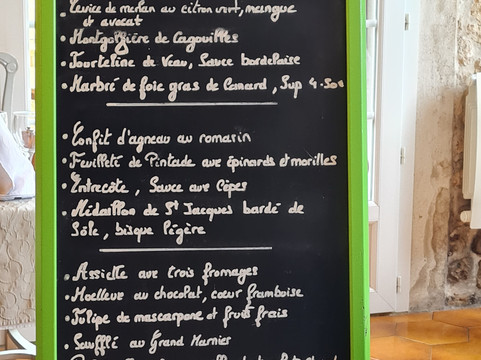 Ceviche de merlan au citron vert, mangue
et avocat
• Montgolfière de Cagouilles
• Tourteline de Veau, Sauce bordelaise
• Marbré de foie gras de Canard, Sup 4.50€
• Confit d'agneau au romarin
• Feuilleté de Pintade aux épinards et morilles
• Entrecôte, Sauce aux Cèpes
• Médaillon de St Jacques bardé de
Sole, bisque légère
• Assiette aux trois fromages
• Moelleux au chocolat, cœur framboise
• Tulipe de mascarpone et fruits frais
• Soufflé au Grand Marnier